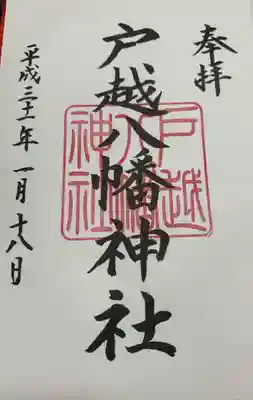 奉拝
戸越八幡神社
平成三十一年一月十八日
戸越
八幡
神社